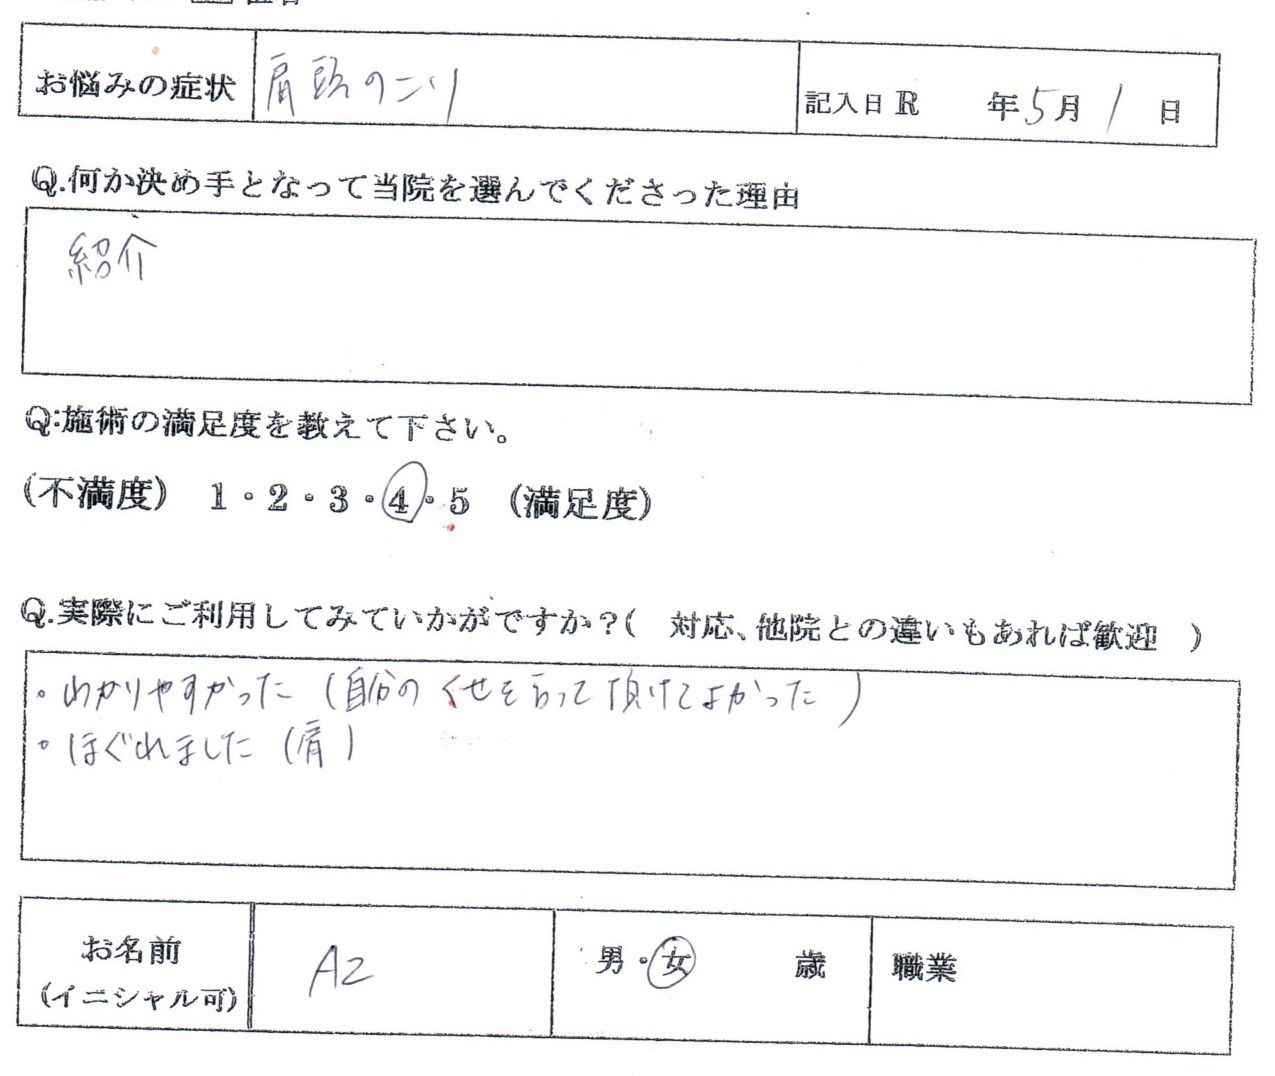 お悩みの症状 肩頭のこり 記入日 R 年5月1日
Q.何か決め手となって当院を選んでくださった理由
紹介
Q:施術の満足度を教えて下さい。
(不満度) 1・2・3・4・5 (満足度)
Q.実際にご利用してみていかがですか?( 対応、他院との違いもあれば歓迎 )
・わかりやすかった (自分のくせを言って頂けてよかった)
・ほぐれました (肩)
お名前 AZ 男・女 歳 職業
(イニシャル可)